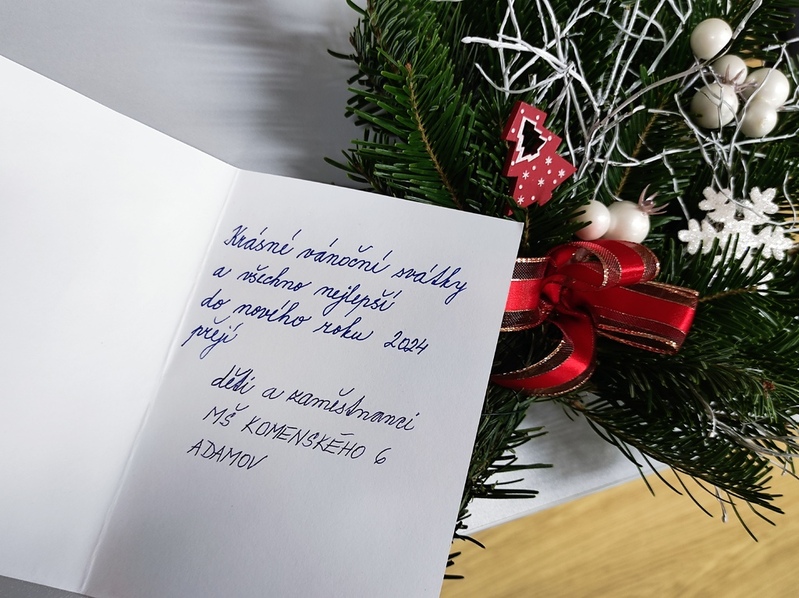 Krásné vánoční svátky
a všechno nejlepší
do nového roku 2024
přejí
děti a zaměstnanci
MŠ KOMENSKÉHO 6
ADAMOV